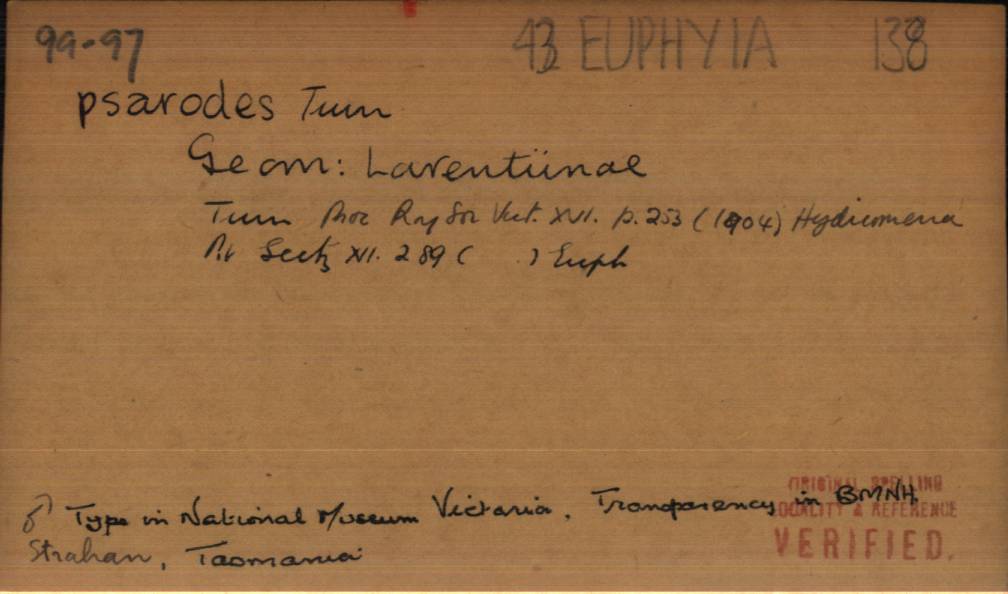 99-97 43 EUPHYIA 138
psarodes Turn
Geom: Larentiinae
Turn Proc Roy Soc Vict. XVI. p. 253 (1904) Hydriomena
Pr Seitz XVI. 289 ( ) Euph
ORIGINAL SPELLING
♂ Type in National Museum Victoria, Transparency in BMNH.
LOCALITY & REFERENCE
Strahan, Tasmania
VERIFIED.